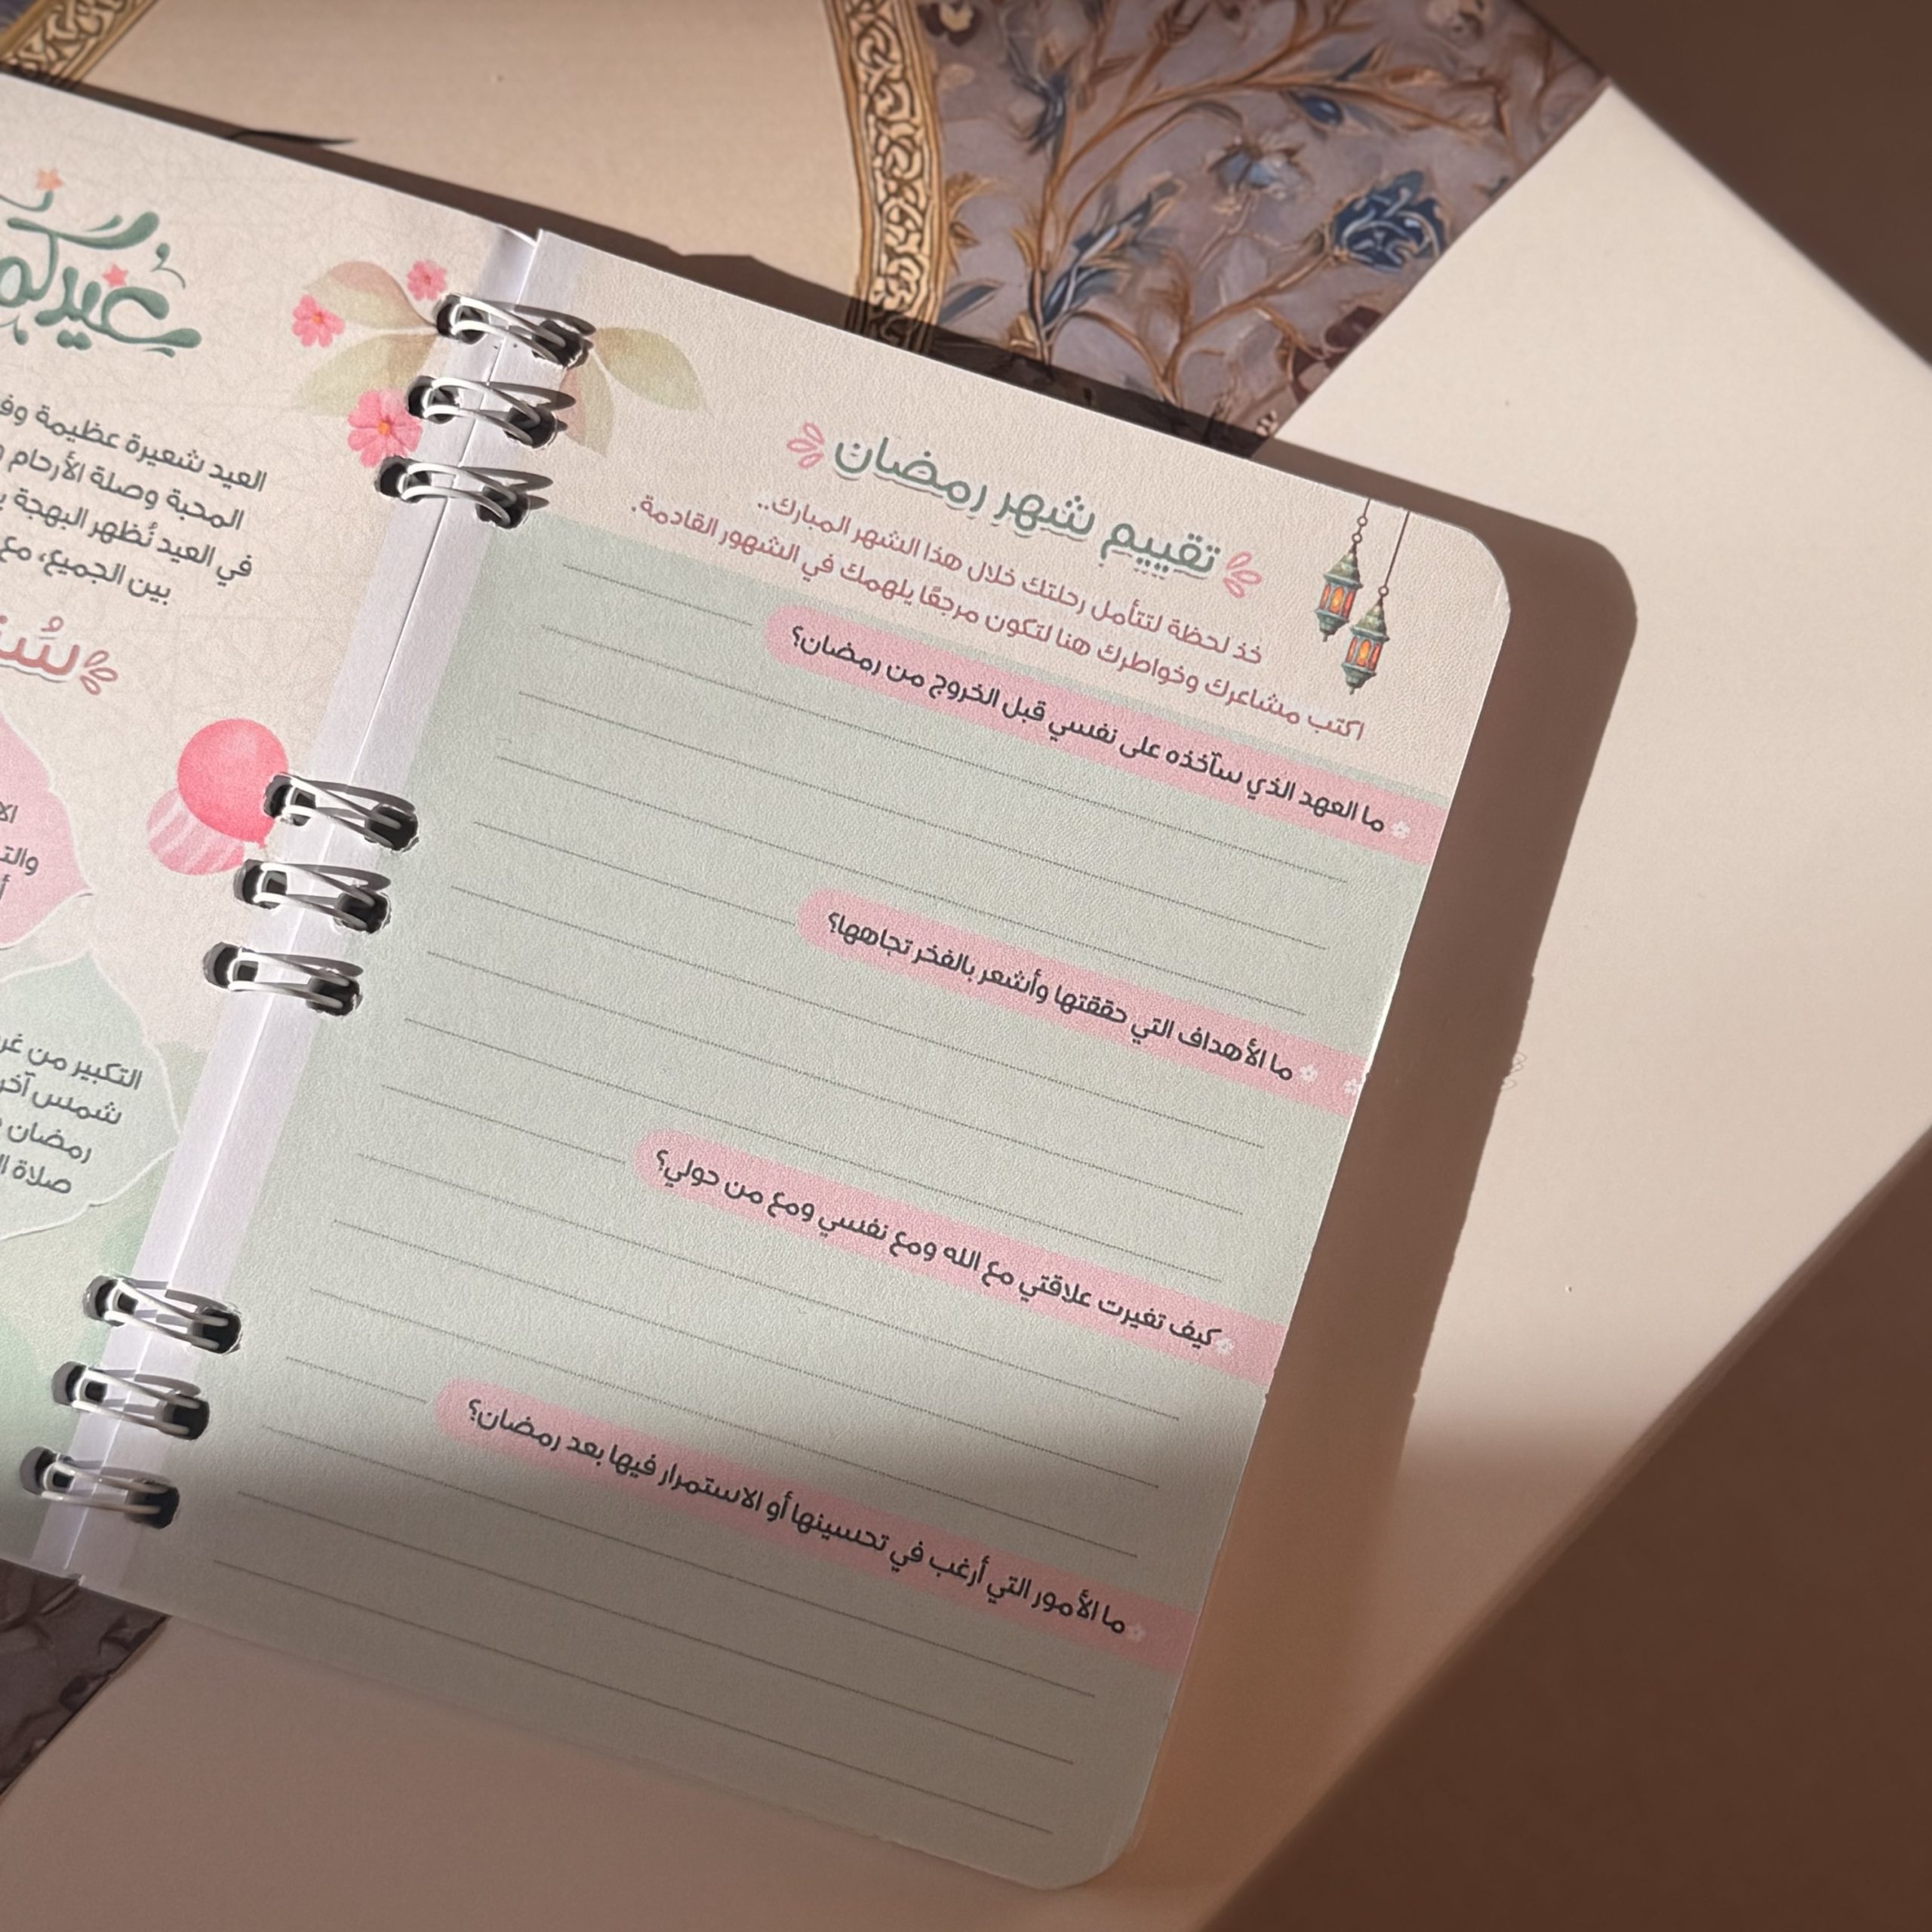 تقييم شهر رمضان
خذ لحظة لتتأمل رحلتك خلال هذا الشهر المبارك..
اكتب مشاعرك وخواطرك هنا لتكون مرجعًا يلهمك في الشهور القادمة.
ما العهد الذي سآخذه على نفسي قبل الخروج من رمضان؟
ما الأهداف التي حققتها وأشعر بالفخر تجاهها؟
كيف تغيرت علاقتي مع الله ومع نفسي ومع من حولي؟
ما الأمور التي أرغب في تحسينها أو الاستمرار فيها بعد رمضان؟
العيد شعيرة عظيمة
المحبة وصلة الأرحام
في العيد نُظهر البهجة
بين الجميع، مع
التكبير من
شمس آخر
رمضان
صلاة